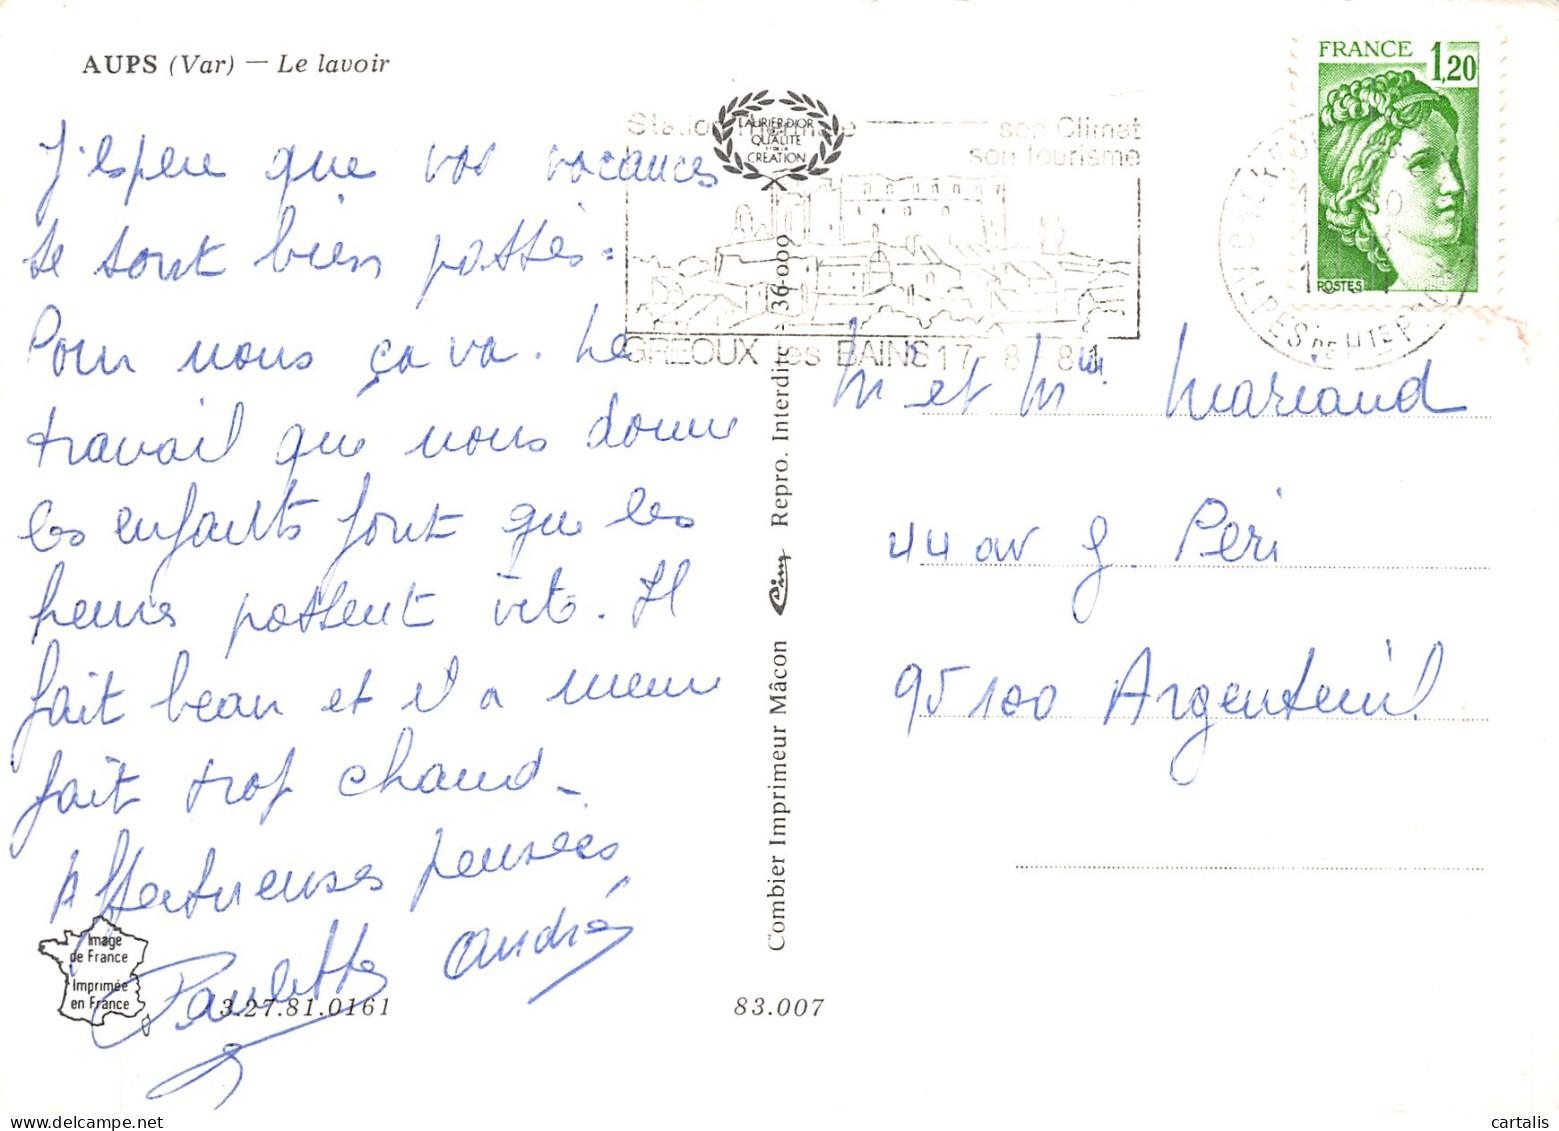 AUPS (Var) — Le lavoir
FRANCE 1,20
POSTES
LAURIER D'OR
QUALITE
CREATION
Station thermale son Climat
son tourisme
GREOUX les BAINS 17 8 81
ALPES DE HTE P
J'espère que vos vacances
se sont bien passées.
Pour nous ça va. Le
travail que nous donne
les enfants font que les
heures passent vite. Il
fait beau et il a meme
fait trop chaud_
Affectueuses pensées
Paulette André
M et Mme Mariaud
44 av g. Peri
95100 Argenteuil
Combier Imprimeur Mâcon Cim Repro. Interdite 36-000
Image
de France
Imprimée
en France
3.27.81.0161
83.007
cartalis